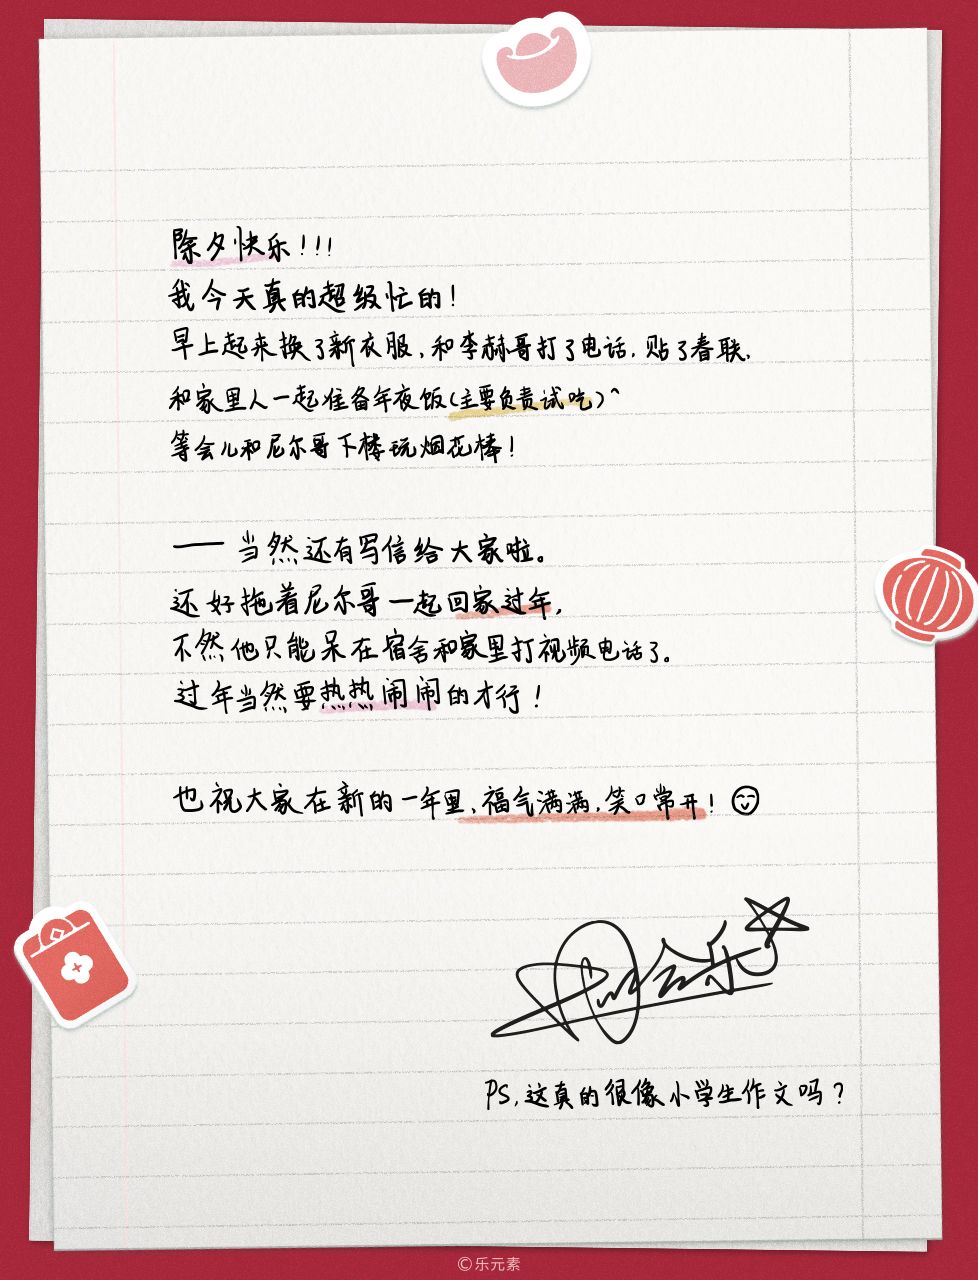 除夕快乐!!!
我今天真的超级忙的!
早上起来换了新衣服,和李赫哥打了电话,贴了春联,
和家里人一起准备年夜饭(主要负责试吃)^
等会儿和尼尔哥下楼玩烟花棒!
——当然还有写信给大家啦。
还好拖着尼尔哥一起回家过年,
不然他只能呆在宿舍和家里打视频电话了。
过年当然要热热闹闹的才行!
也祝大家在新的一年里,福气满满,笑口常开!
PS,这真的很像小学生作文吗?
©乐元素